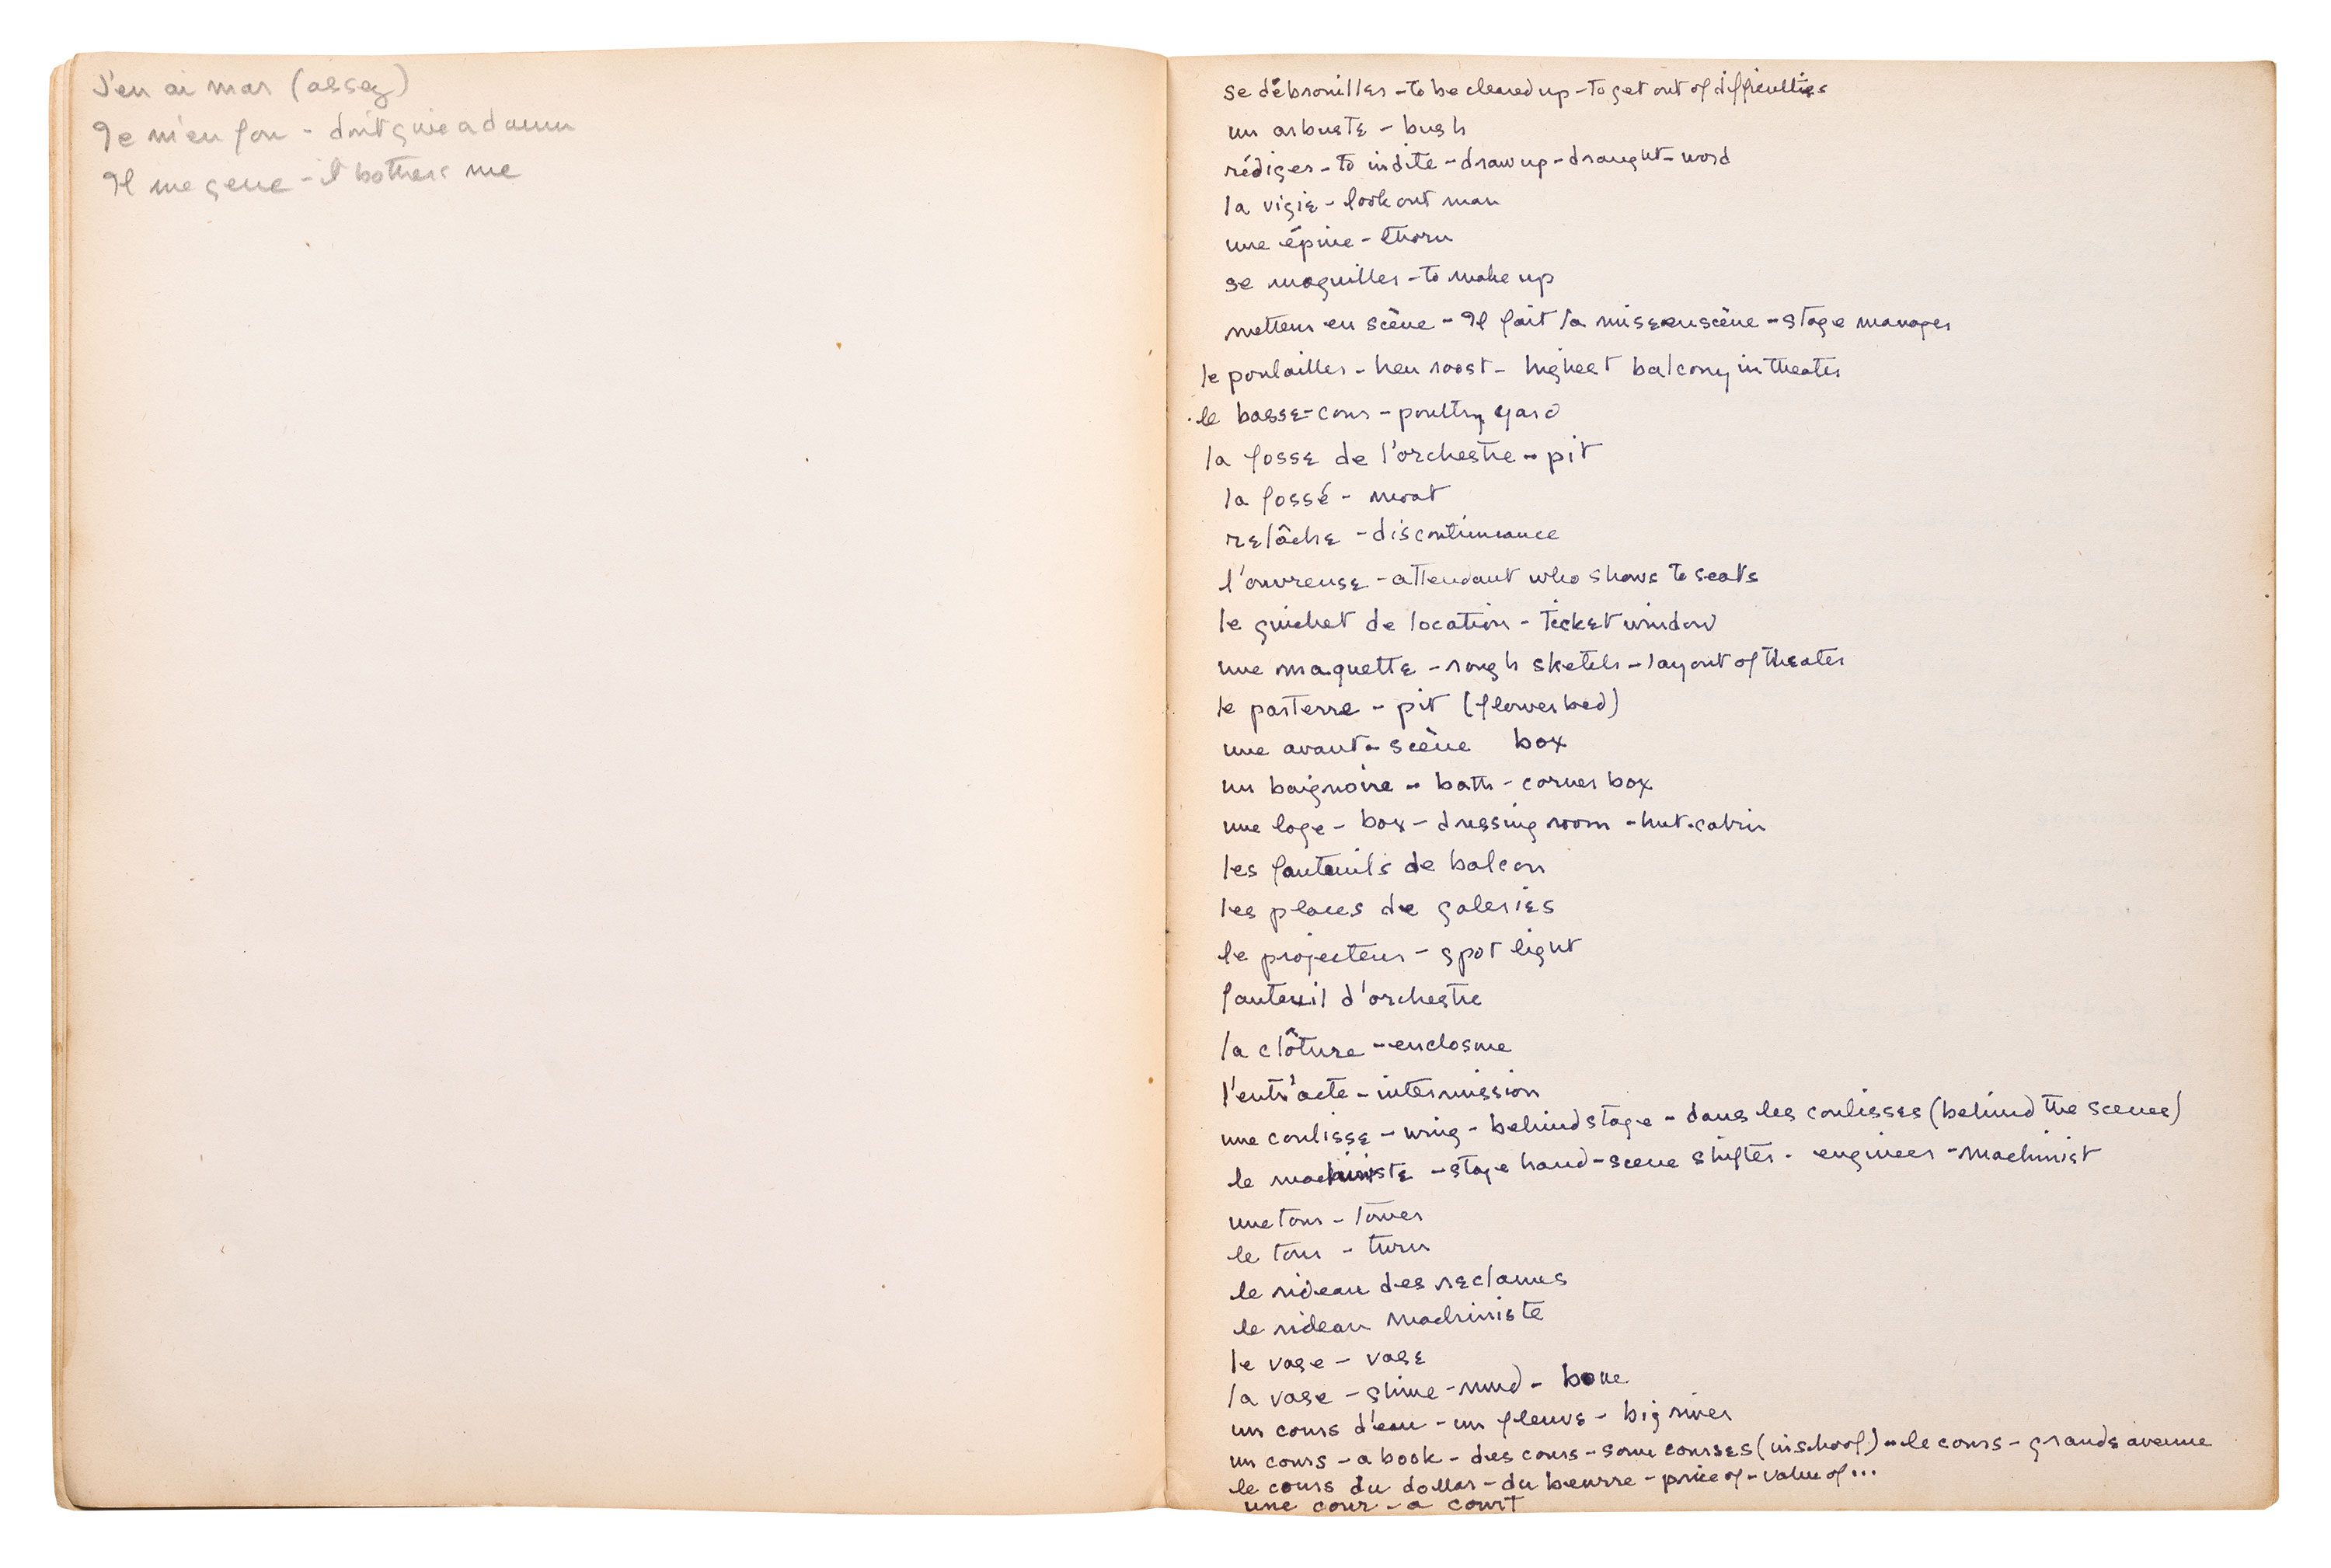 J'en ai mar (assez)
Je m'en fou - don't give a damn
Il me gene - it bothers me
se débrouiller - to be cleared up - to get out of difficulties
un arbuste - bush
rédiger - to indite - draw up - draught - word
la vigie - look out man
une épine - thorn
se maquiller - to make up
metteur en scène - Il fait la mise en scène - stage manager
le poulailler - hen roost - highest balcony in theater
le basse-cour - poultry yard
la fosse de l'orchestre - pit
la fossé - moat
relâche - discontinuance
l'ouvreuse - attendant who shows to seats
le guichet de location - ticket window
une maquette - rough sketch - layout of theater
le parterre - pit (flower bed)
une avant-scène box
un baignoire - bath - corner box
une loge - box - dressing room - hut - cabin
les fauteuils de balcon
les places de galeries
le projecteur - spot light
fauteuil d'orchestre
la clôture - enclosure
l'entr'acte - intermission
une coulisse - wing - behind stage - dans les coulisses (behind the scenes)
le machiniste - stage hand - scene shifter - engineer - machinist
une tour - tower
le tour - turn
le rideau des reclames
le rideau machiniste
le vase - vase
la vase - slime - mud - boue
un cours d'eau - un fleuve - big river
un cours - a book - des cours - some courses (in school) - le cours - grands avenue
le cours du dollar - du beurre - price of - value of...
une cour - a court